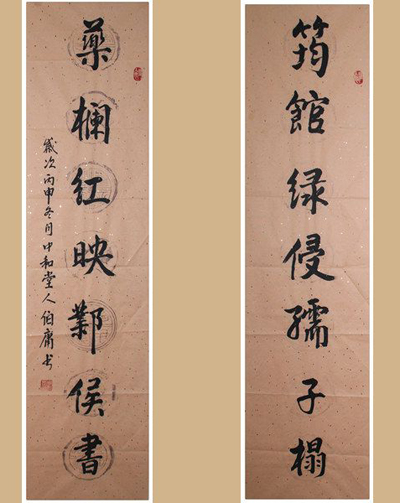 筠館绿侵孺子榻
藥欄红映鄴侯書
嵗次丙申冬月中和堂人伯庸书